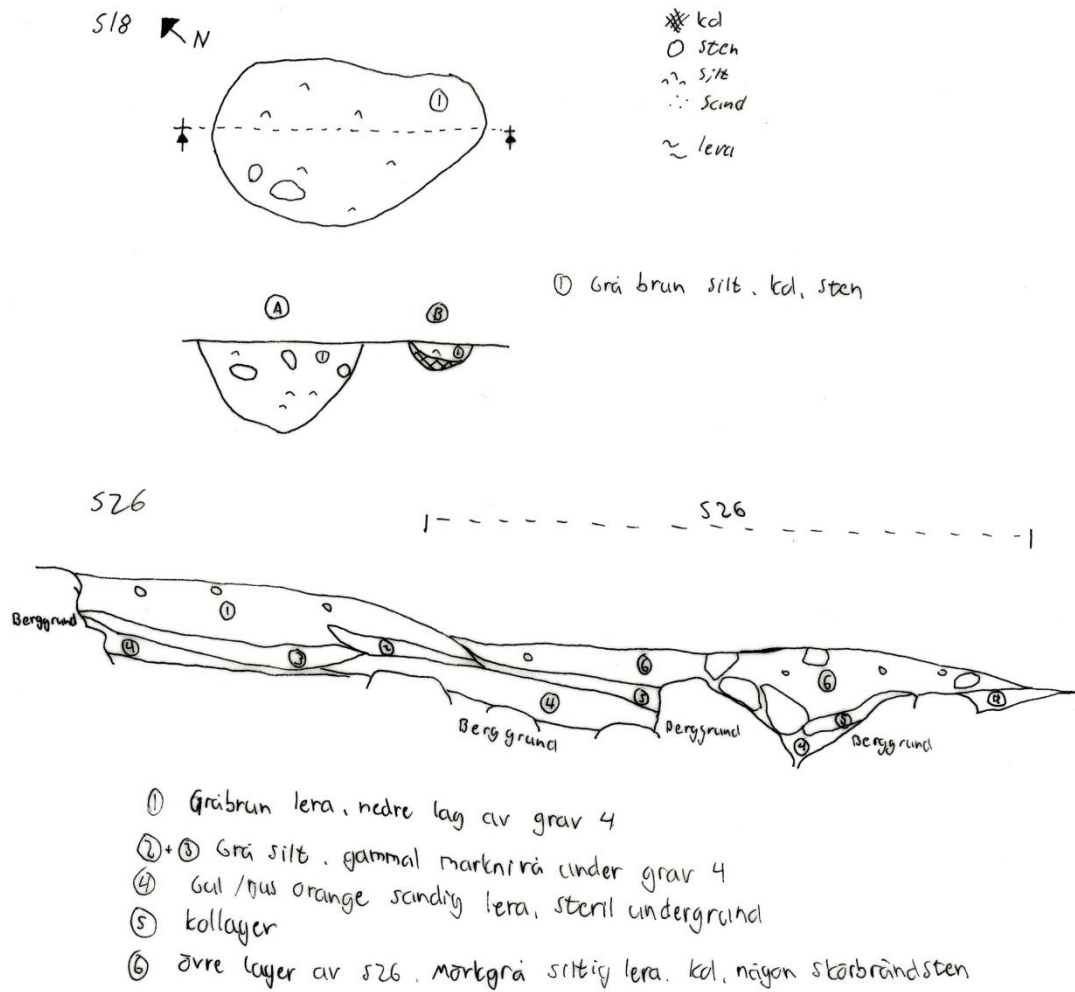 S18
N
kol
sten
silt
sand
lera
1
A
B
1
1
① Grå brun silt. kol, sten
S26
S26
Berggrund
1
4
3
2
6
4
3
Berggrund
Berggrund
6
5
4
Berggrund
① Gråbrun lera, nedre lag av grav 4
②+③ Grå silt. gammal marknivå under grav 4
④ Gul/ljus orange sandig lera, steril undergrund
⑤ kollager
⑥ övre lager av S26. Mörkgrå siltig lera. kol, någon skörbränd sten